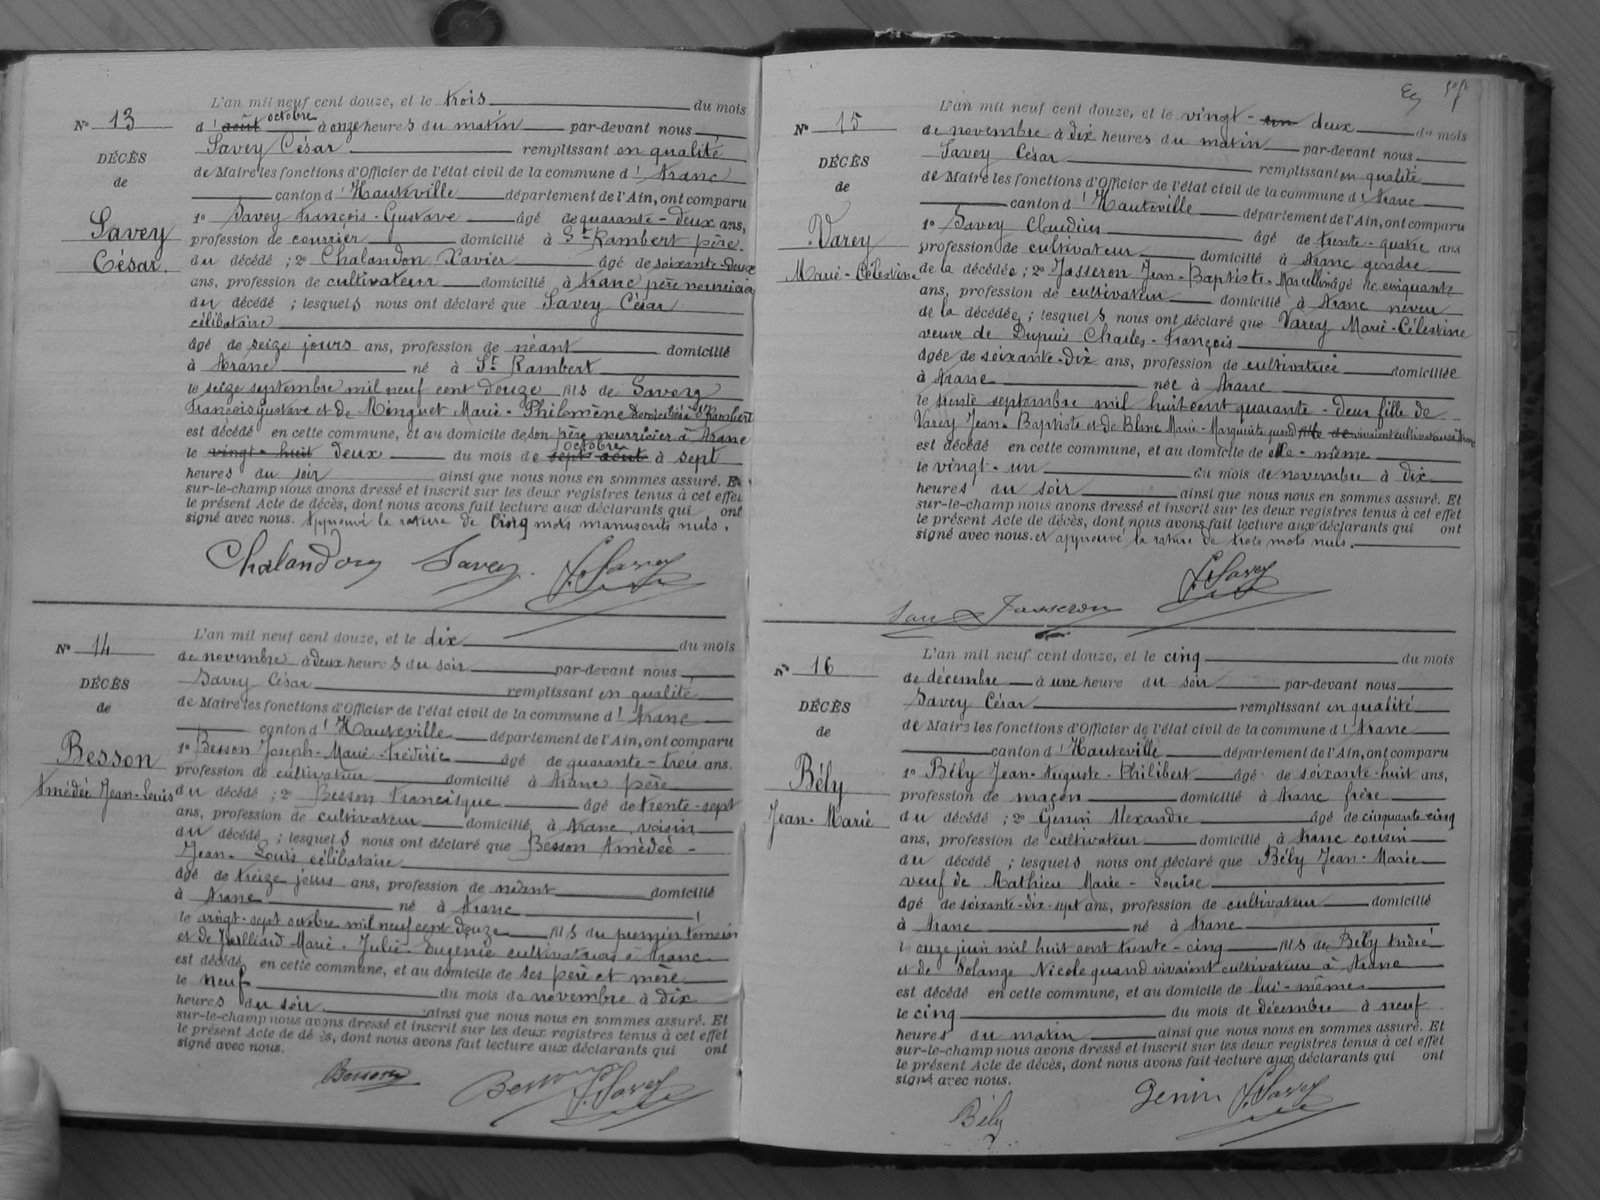 L'an mil neuf cent douze, et le trois du mois
N° 13
d' août octobre à onze heures du matin par-devant nous
Savey César remplissant en qualité
DÉCÈS
de Maire les fonctions d'Officier de l'état civil de la commune d' Aranc
de
canton d' Hauteville département de l'Ain, ont comparu
1° Savey François-Gustave âgé de quarante-deux ans,
Savey
profession de courrier domicilié à St Rambert père
César.
du décédé ; 2° Chalandon Xavier âgé de soixante-deux
ans, profession de cultivateur domicilié à Aranc père nourricier
du décédé ; lesquels nous ont déclaré que Savey César
célibataire
âgé de seize jours ans, profession de néant domicilié
à Aranc né à St Rambert
le seize septembre mil neuf cent douze fils de Savey
François Gustave et de Minguet Marie-Philomène domiciliés à St Rambert
est décédé en cette commune, et au domicile de son père nourricier à Aranc
le vingt-huit deux du mois de sept août octobre à sept
heures du soir ainsi que nous nous en sommes assuré. Et
sur-le-champ nous avons dressé et inscrit sur les deux registres tenus à cet effet
le présent Acte de décès, dont nous avons fait lecture aux déclarants qui ont
signé avec nous. Approuvé la rature de cinq mots manuscrits nuls.
Chalandon Savey C. Savey
L'an mil neuf cent douze, et le dix du mois
N° 14
de novembre à deux heures du soir par-devant nous
Savey César remplissant en qualité
DÉCÈS
de Maire les fonctions d'Officier de l'état civil de la commune d' Aranc
de
canton d' Hauteville département de l'Ain, ont comparu
1° Besson Joseph-Marie-Frédéric âgé de quarante-trois ans.
Besson
profession de cultivateur domicilié à Aranc père
Amédée Jean-Louis
du décédé ; 2° Besson Francisque âgé de trente-sept
ans, profession de cultivateur domicilié à Aranc voisin
du décédé ; lesquels nous ont déclaré que Besson Amédée-
Jean-Louis célibataire
âgé de treize jours ans, profession de néant domicilié
à Aranc né à Aranc
le vingt-sept octobre mil neuf cent douze fils du premier témoin
et de Juilliard Marie-Julie-Eugénie cultivateurs à Aranc
est décédé en cette commune, et au domicile de ses père et mère
le neuf du mois de novembre à dix
heures du soir ainsi que nous nous en sommes assuré. Et
sur-le-champ nous avons dressé et inscrit sur les deux registres tenus à cet effet
le présent Acte de décès, dont nous avons fait lecture aux déclarants qui ont
signé avec nous.
Besson Besson C. Savey
L'an mil neuf cent douze, et le vingt- deux du mois
N° 15
de novembre à dix heures du matin par-devant nous
Savey César remplissant en qualité
DÉCÈS
de Maire les fonctions d'Officier de l'état civil de la commune d' Aranc
de
canton d' Hauteville département de l'Ain, ont comparu
1° Savey Claudius âgé de trente-quatre ans
Varey
profession de cultivateur domicilié à Aranc gendre
Marie-Célestine
de la décédée ; 2° Jasseron Jean-Baptiste-Marcellin âgé de cinquante
ans, profession de cultivateur domicilié à Aranc neveu
de la décédée ; lesquels nous ont déclaré que Varey Marie-Célestine
veuve de Dupuis Charles-François
âgée de soixante-dix ans, profession de cultivatrice domiciliée
à Aranc née à Aranc
le trente septembre mil huit cent quarante-deux fille de
Varey Jean-Baptiste et de Blanc Marie-Marguerite quand vivaient cultivateurs à Aranc
est décédé en cette commune, et au domicile de elle-même
le vingt-un du mois de novembre à dix
heures du soir ainsi que nous nous en sommes assuré. Et
sur-le-champ nous avons dressé et inscrit sur les deux registres tenus à cet effet
le présent Acte de décès, dont nous avons fait lecture aux déclarants qui ont
signé avec nous. et approuvé la rature de trois mots nuls.
C. Savey
Jasseron
L'an mil neuf cent douze, et le cinq du mois
N° 16
de décembre à une heure du soir par-devant nous
Savey César remplissant en qualité
DÉCÈS
de Maire les fonctions d'Officier de l'état civil de la commune d' Aranc
de
canton d' Hauteville département de l'Ain, ont comparu
1° Bély Jean-Auguste-Philibert âgé de soixante-huit ans,
Bély
profession de maçon domicilié à Aranc frère
Jean-Marie
du décédé ; 2° Genin Alexandre âgé de cinquante-cinq
ans, profession de cultivateur domicilié à Aranc cousin
du décédé ; lesquels nous ont déclaré que Bély Jean-Marie
veuf de Mathieu Marie-Louise
âgé de soixante-dix-sept ans, profession de cultivateur domicilié
à Aranc né à Aranc
l onze juin mil huit cent trente-cinq fils de Bély André
et de Solange Nicole quand vivaient cultivateurs à Aranc
est décédé en cette commune, et au domicile de lui-même
le cinq du mois de décembre à neuf
heures du matin ainsi que nous nous en sommes assuré. Et
sur-le-champ nous avons dressé et inscrit sur les deux registres tenus à cet effet
le présent Acte de décès, dont nous avons fait lecture aux déclarants qui ont
signé avec nous.
Bély Genin C. Savey